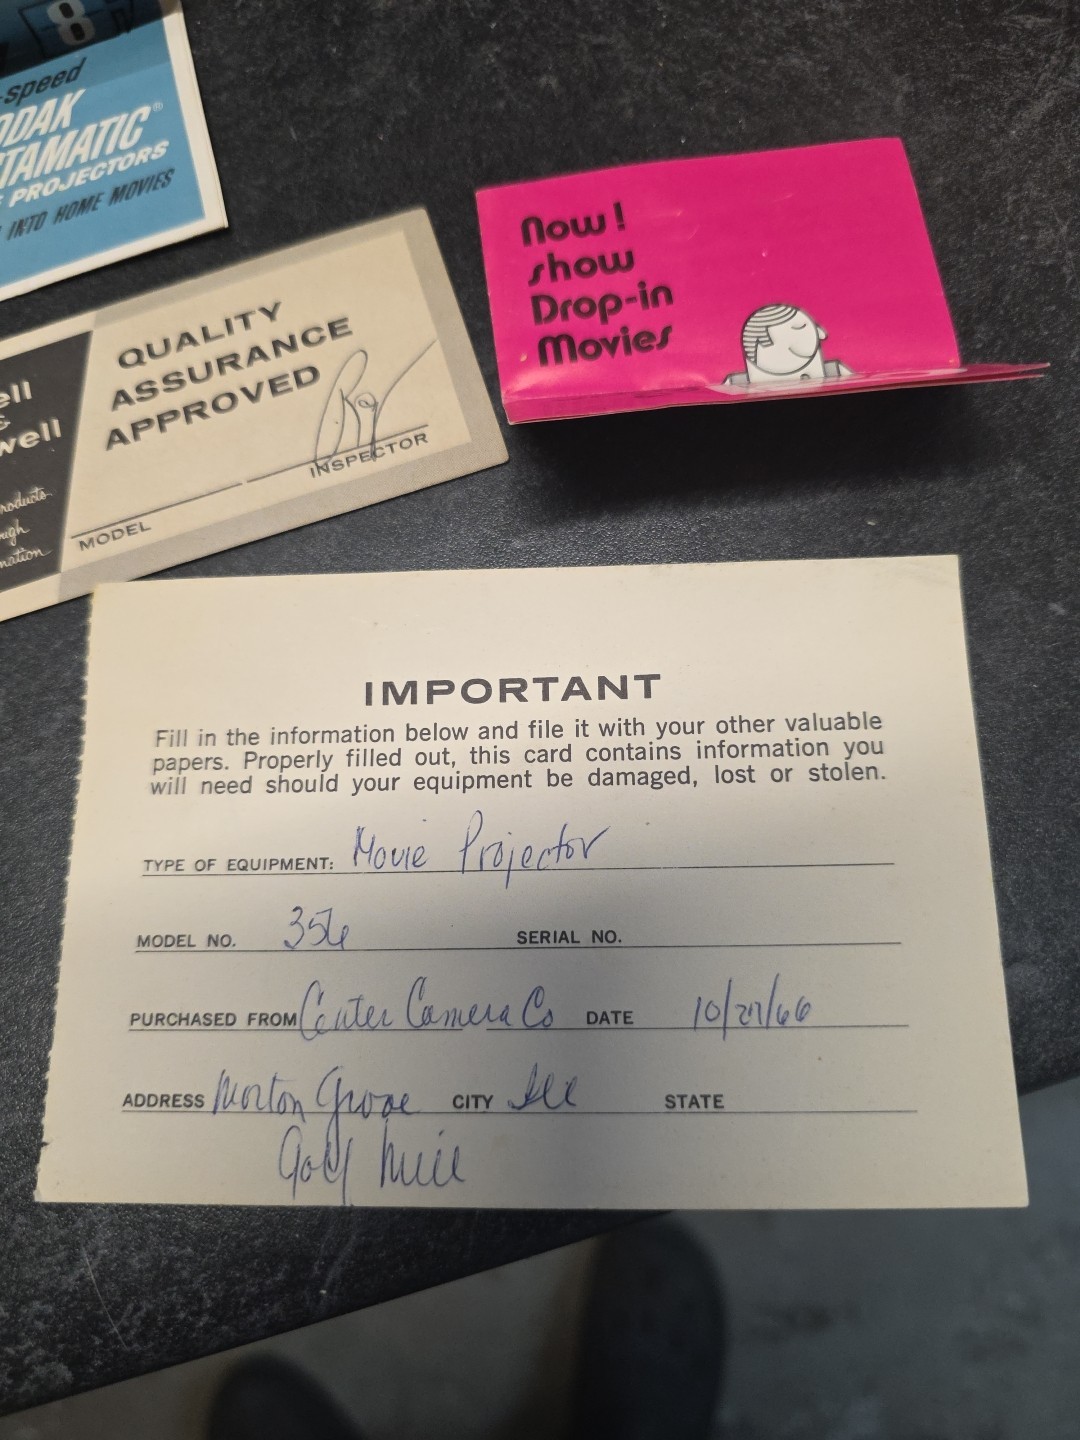 8
-speed
ODAK
TAMATIC®
E PROJECTORS
INTO HOME MOVIES
Now!
show
Drop-in
Movies
ell
&
well
roducts
ough
mation
QUALITY
ASSURANCE
APPROVED
Ray
INSPECTOR
MODEL
IMPORTANT
Fill in the information below and file it with your other valuable
papers. Properly filled out, this card contains information you
will need should your equipment be damaged, lost or stolen.
TYPE OF EQUIPMENT: Movie Projector
MODEL NO. 356 SERIAL NO.
PURCHASED FROM Center Camera Co DATE 10/27/66
ADDRESS Morton Grove CITY Ill STATE
Golf Mill